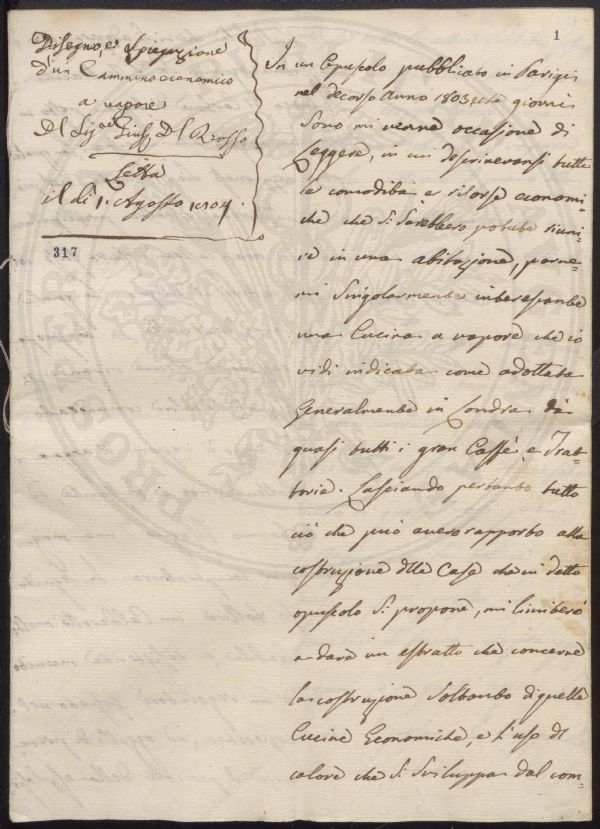 1
Disegno, e Spiegazione
d'un Cammino economico
a vapore
Del Sig.re Giusp. Del Rosso
Letta
il dì 1. Agosto 1804.
317
In un Opuscolo pubblicato in Parigi
nel decorso Anno 1803 che giorni
sono mi venne occasione di
Leggere, in cui descrivevansi tutte
le comodità e risorse economi-
che che si sarebbero potute riuni-
re in una abitazione, parve-
mi singolarmente interessante
una Cucina a vapore che io
vidi indicata come adottata
Generalmente in Londra da
quasi tutti i gran Caffè, e Trat-
torie. Lasciando pertanto tutto
ciò che può avere rapporto alla
costruzione dlle Case che in detto
opuscolo si propone, mi limiterò
a dare un estratto che concerne
la costruzione soltanto di quelle
Cucine Economiche, e l'uso di
calore che si sviluppa dal com-